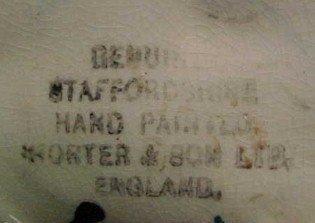 GENUINE
STAFFORDSHIRE
HAND PAINTED.
SHORTER & SON LTD.
ENGLAND.